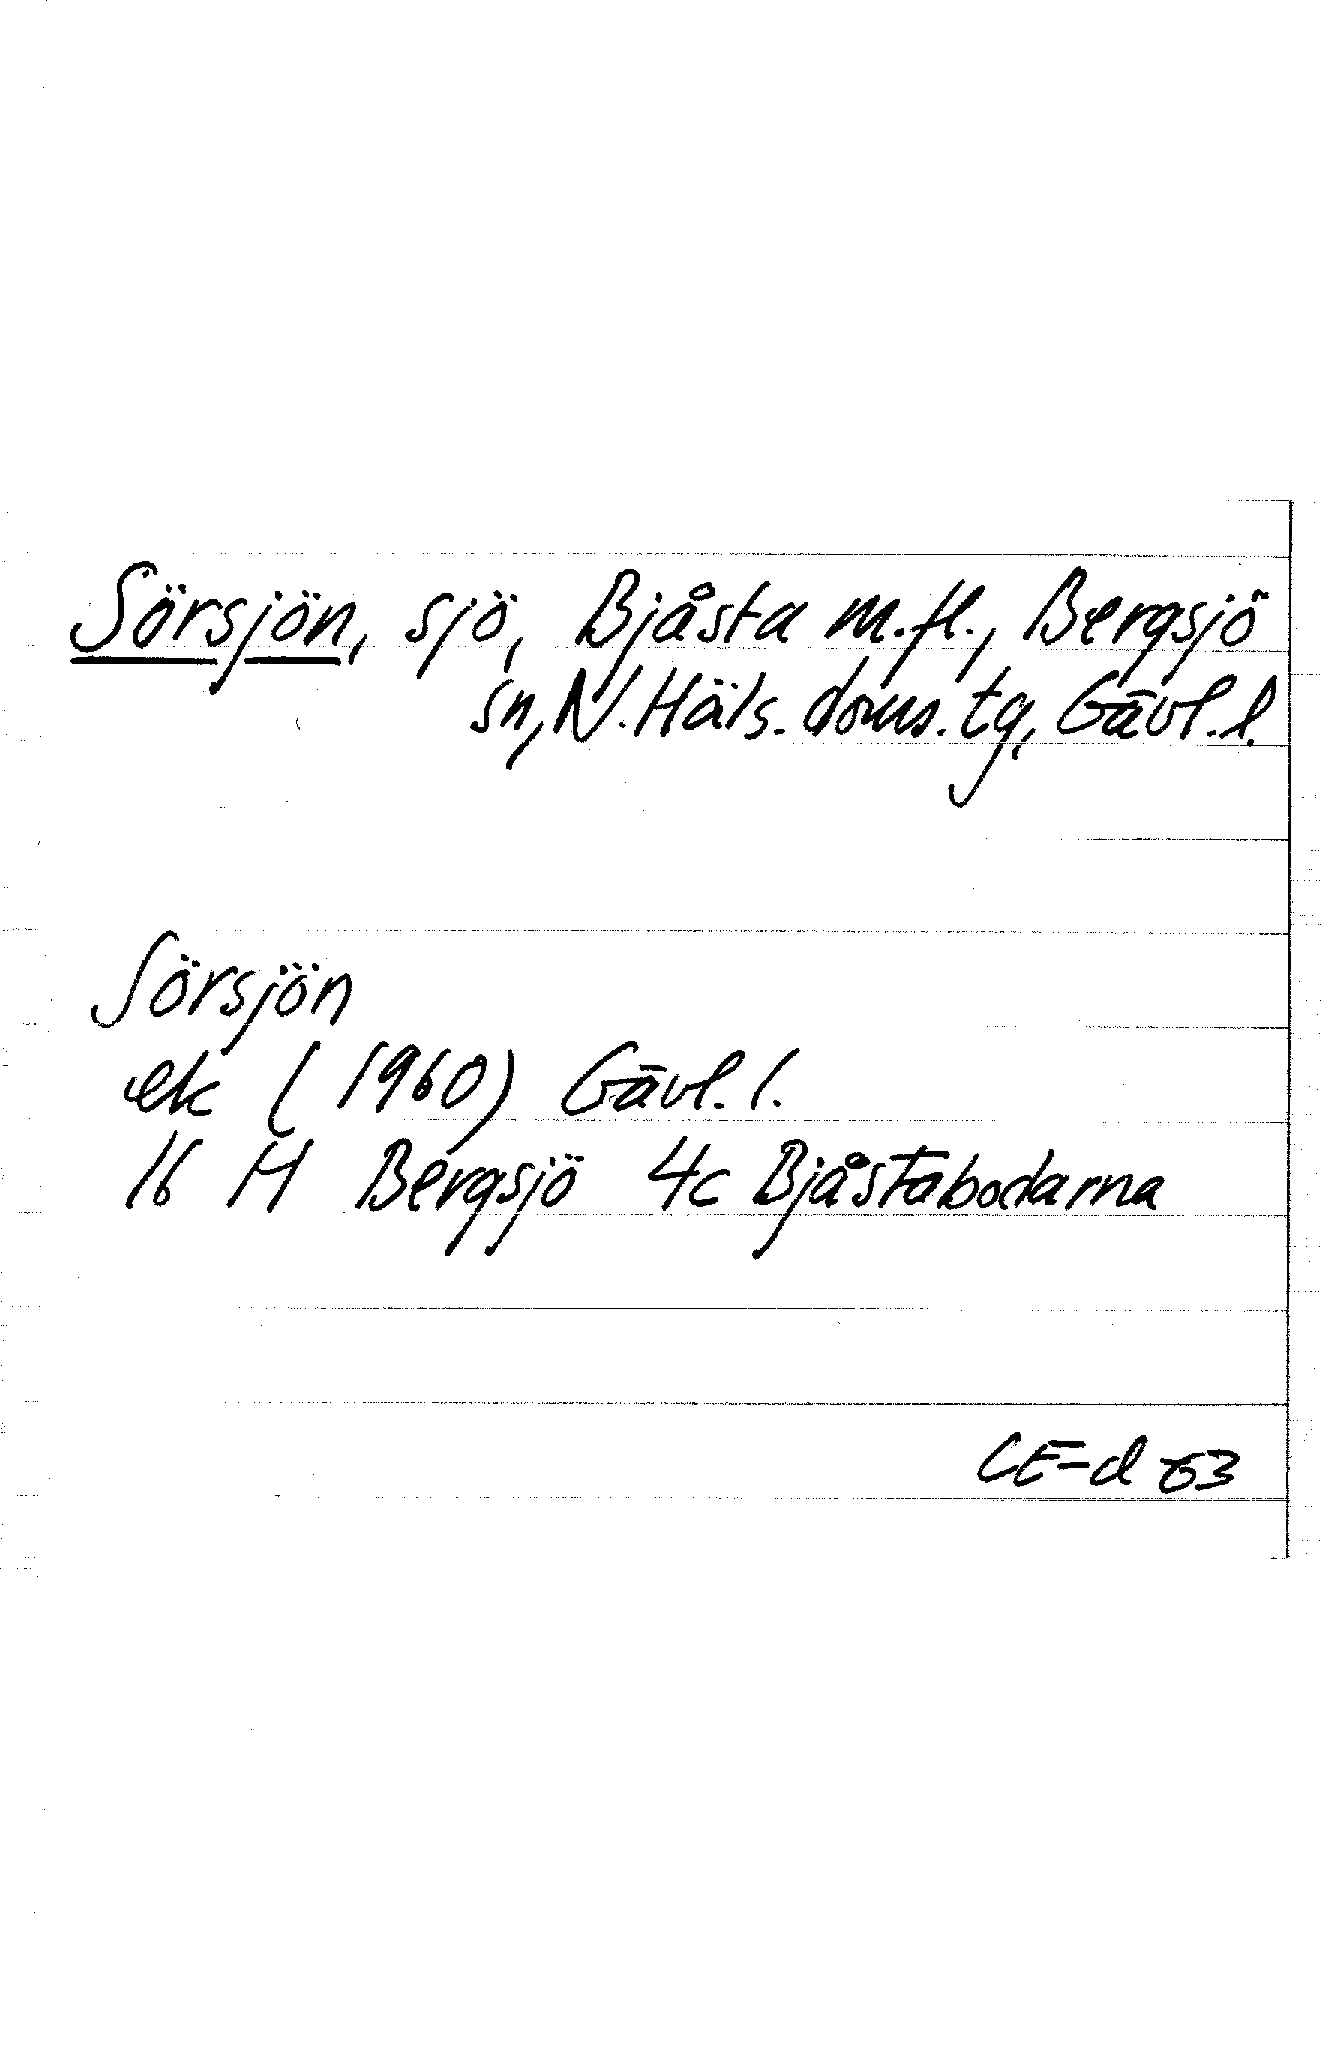 Sörsjön, sjö, Bjåsta m.fl., Bergsjö
sn, N. Häls. doms. tg, Gävl. l.
Sörsjön
ek (1960) Gävl. l.
16 H Bergsjö 4c Bjåstabodarna
CE-d 63